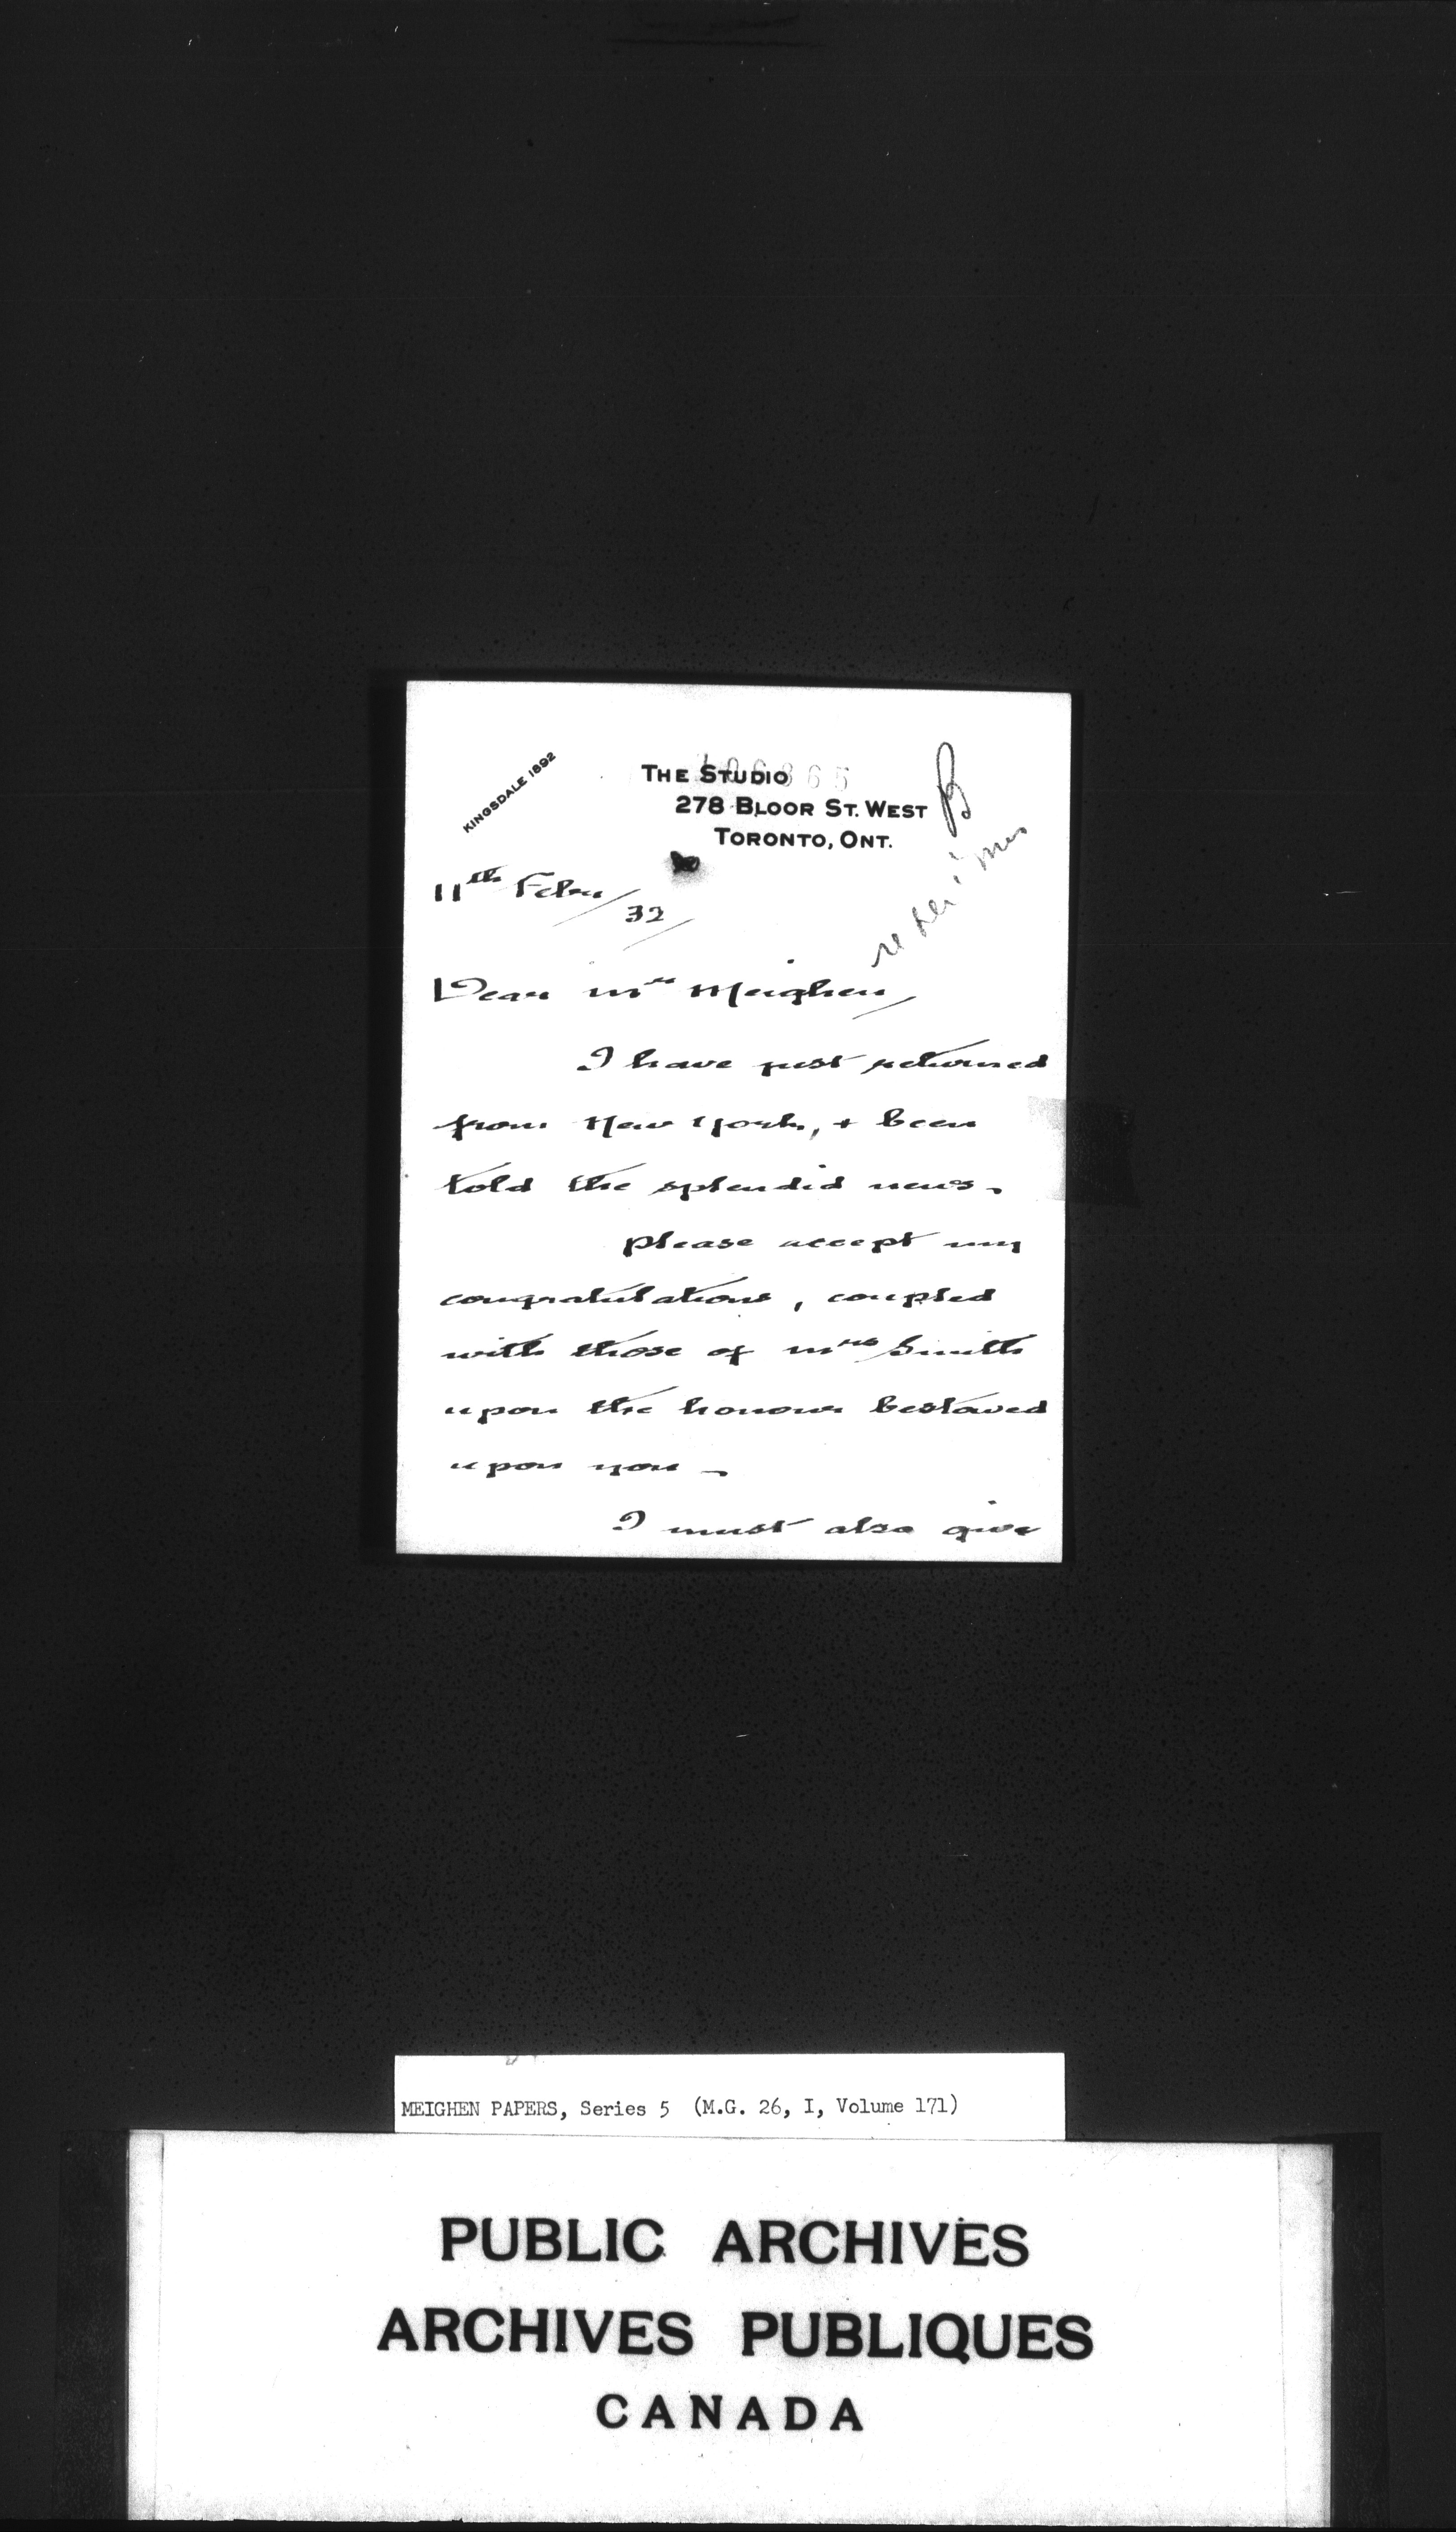 KINGSDALE 1892
THE STUDIO
278 BLOOR ST. WEST
TORONTO, ONT.
B
11th Febru/32
Dear Mr Meighen
I have just returned
from New York, + been
told the splendid news.
Please accept my
congratulations, coupled
with those of Mrs Smith
upon the honour bestowed
upon you –
I must also give
MEIGHEN PAPERS, Series 5 (M.G. 26, I, Volume 171)
PUBLIC ARCHIVES
ARCHIVES PUBLIQUES
CANADA